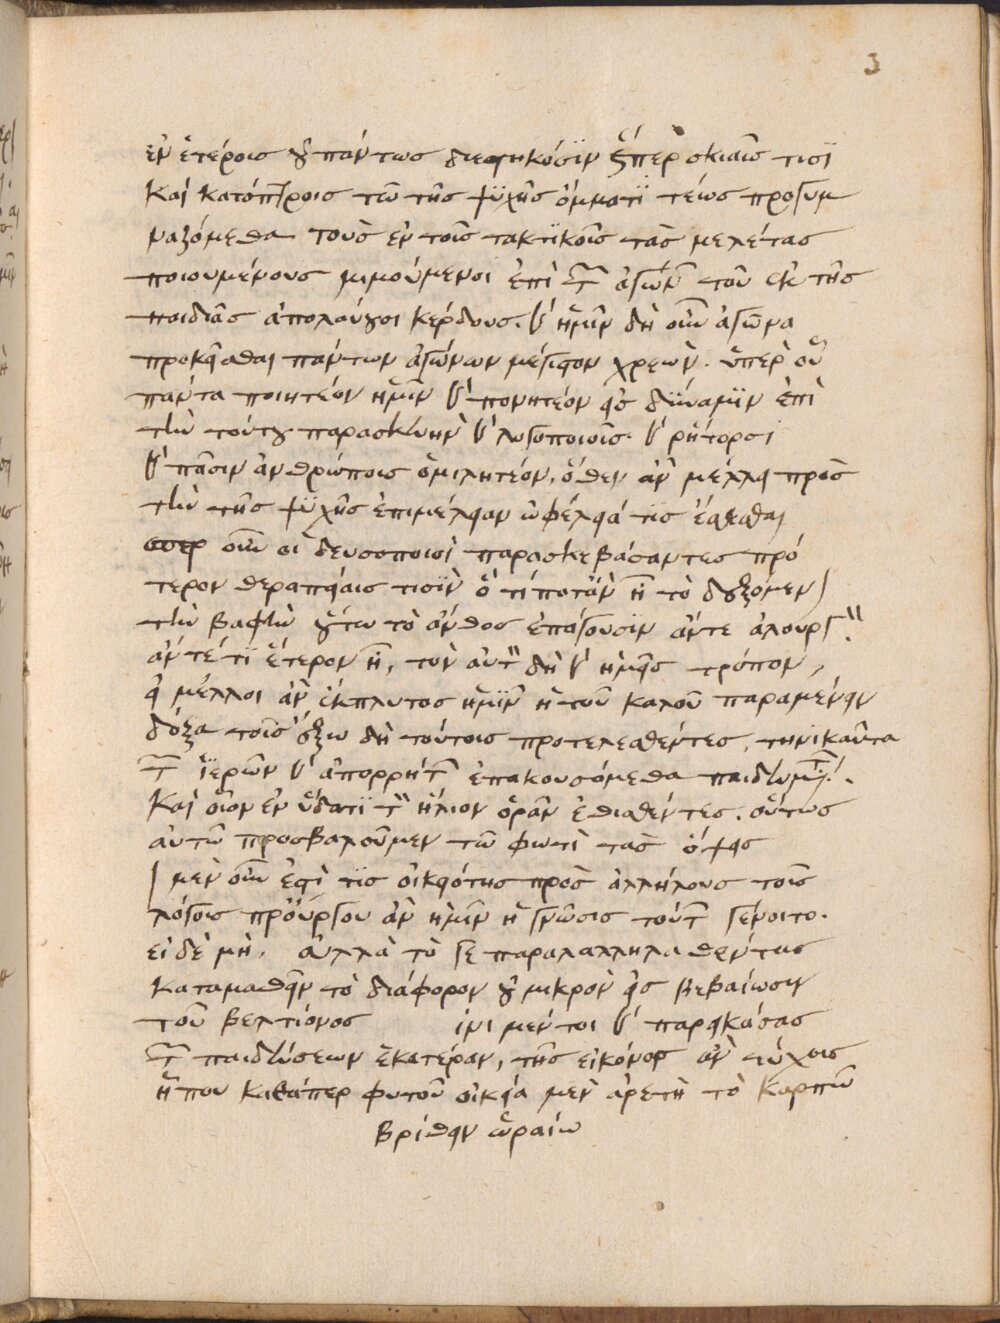 3
ἐν ἑτέροις οὐ πάντως διεστηκόσϊν ὥσπερ σκιαῖς τισῒ
καὶ κατόπτροις τῶ τῆς ψϋχῆς ὄμματϊ τέως προγυμ
ναζόμεθα τοὺς ἐν τοῖς τακτϊκοῖς τὰς μελέτας
ποιουμένους μιμούμενοι ἐπὶ τῶν ἀγών τοῦ ἐκ τῆς
παιδιᾶς ἀπολαύουσι κέρδους. καὶ ἡμῖν δὴ οὖν ἀγῶνα
προκεῖσθαι πάντων ἀγώνων μέγιστον χρεὼν. ὑπὲρ οὗ
πάντα ποιητέον ἡμῖν καὶ πονητέον εἰς δϋναμϊν ἐπὶ
τὴν τούτου παρασκευὴν καὶ λογοποιοῖς. καὶ ῥήτορσι
καὶ πᾶσιν ἀνθρώποις ὁμιλητέον, ὅθεν ἂν μέλλῃ πρὸς
τὴν τῆς ψϋχῆς ἐπιμέλειαν ὠφέλειά τις ἔσεσθαι
ὥσπερ οὖν οἱ δευσοποιοὶ παρασκεβάσαντες πρό
τερον θεραπείαις τισϊν ὅ τί ποτ' ἂν ἦ τὸ δεξόμεν
τὴν βαφὴν οὕτω τὸ ἄνθος ἐπάγουσϊν ἄν τε ἁλουργ
ἄν τέ τϊ ἕτερον ἦ, τὸν αὐτ δὴ καὶ ἡμεῖς τρόπον,
εἰ μέλλοι ἀνέκπλυτος ἡμῖν ἡ τοῦ καλοῦ παραμένειν
δόξα τοῖς ἔξω δὴ τούτοις προτελεσθέντες, τηνικαῦτα
τῶν ἱερῶν καὶ ἀπορρήτων ἐπακουσόμεθα παιδευμάτων.
Καὶ οἷον ἐν ὕδατϊ τὸν ἥλιον ὁρᾶν ἐθισθέντες. οὕτως
αὐτῶ προσβαλοῦμεν τῶ φωτὶ τὰς ὄψεις
μὲν οὖν ἐστὶ τϊς οἰκειότης πρὸς ἀλλήλους τοῖς
λόγοις προὔργου ἂν ἡμῖν ἡ γνῶσις τούτων γένοιτο.
εἰ δὲ μὴ, ἀλλὰ τὸ γε παραλαλληλα θέντας
καταμαθεῖν τὸ διάφορον οὐ μικρὸν εἰς βεβαίωσιν
τοῦ βελτίονος τίνι μέντοι καὶ παρεικάσας
τῶν παιδεύσεων ἑκατέραν, τῆς εἰκόνος ἂν τύχοις
ἤπου καθάπερ φυτοῦ οἰκεία μὲν ἀρετὴ τὸ καρπῶ
βρίθειν ὡραίω